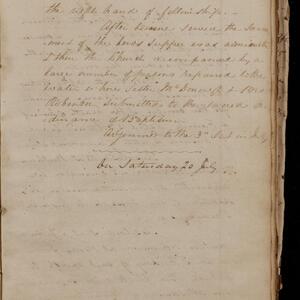 the right hand of fellowship.
After became Service the Sacra
ment of the Lords Supper was administe
& then the Church accompanied by a
large number of persons repaired to the
water where Sister
submitted to the sacred
ordinance of Baptism
Adjourned to the 3d Sat in July
On Saturday 20 July